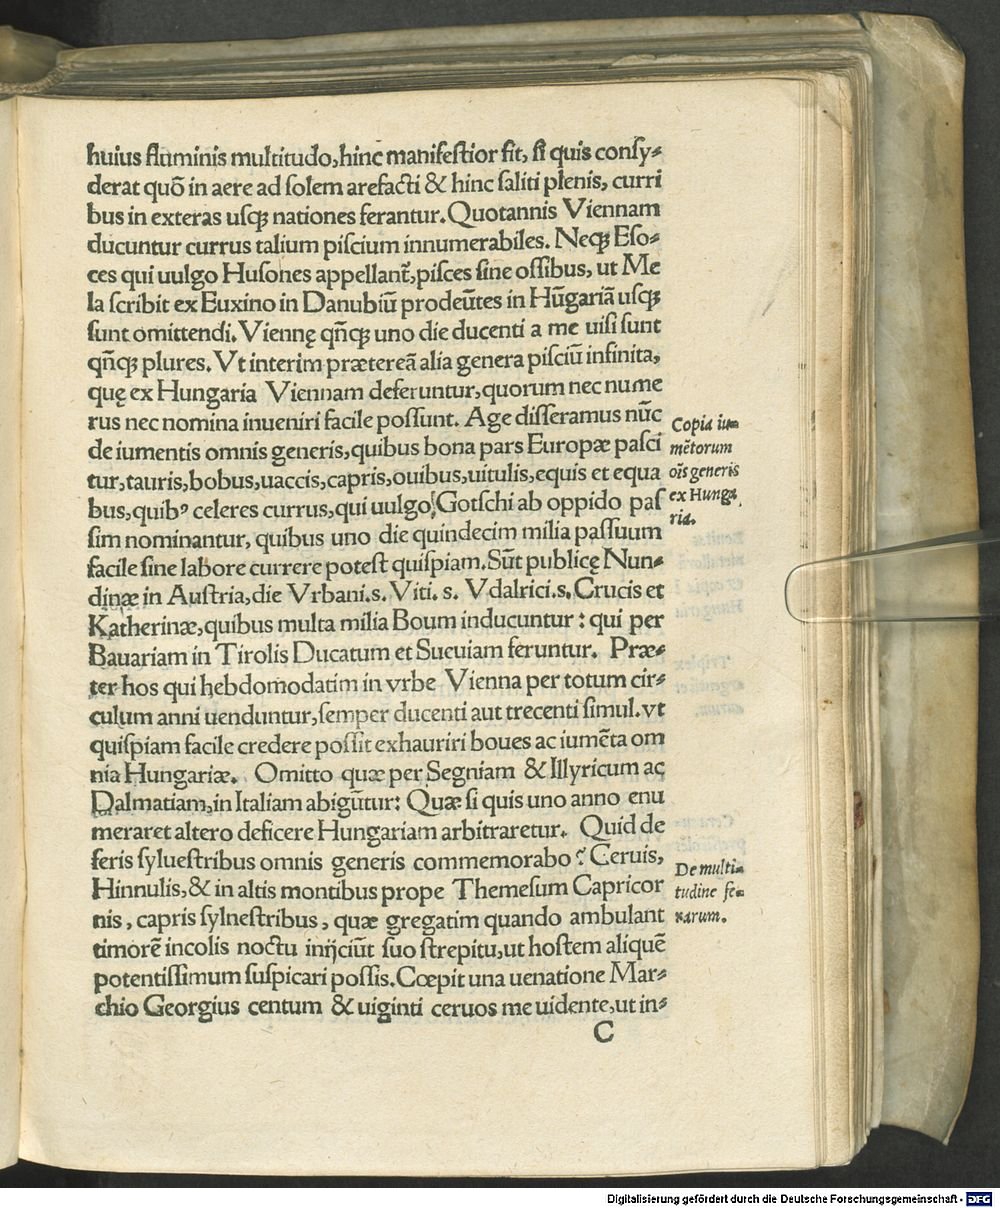 huius fluminis multitudo, hinc manifestior fit, si quis consy-
derat quō in aere ad solem arefacti & hinc saliti plenis, curri
bus in exteras usqꝫ nationes ferantur. Quotannis Viennam
ducuntur currus talium piscium innumerabiles. Neqꝫ Eso-
ces qui uulgo Husones appellant̃, pisces sine ossibus, ut Me
la scribit ex Euxino in Danubiū prodeūtes in Hūgariā usqꝫ
sunt omittendi. Viennę qñqꝫ uno die ducenti a me uisi sunt
qñqꝫ plures. Vt interim prætereā alia genera pisciū infinita,
quę ex Hungaria Viennam deferuntur, quorum nec nume
rus nec nomina inueniri facile possunt. Age disseramus nūc
de iumentis omnis generis, quibus bona pars Europæ pasci
tur, tauris, bobus, uaccis, capris, ouibus, uitulis, equis et equa
bus, quibꝰ celeres currus, qui uulgo Gotschi ab oppido pas
sim nominantur, quibus uno die quindecim milia passuum
facile sine labore currere potest quispiam. Sūt publicę Nun-
dinæ in Austria, die Vrbani. s. Viti. s. Vdalrici. s. Crucis et
Katherinæ, quibus multa milia Boum inducuntur: qui per
Bauariam in Tirolis Ducatum et Sueuiam feruntur. Præ-
ter hos qui hebdomodatim in vrbe Vienna per totum cir-
culum anni uenduntur, semper ducenti aut trecenti simul. vt
quispiam facile credere possit exhauriri boues ac iumēta om
nia Hungariæ. Omitto quæ per Segniam & Illyricum ac
Dalmatiam, in Italiam abigūtur: Quæ si quis uno anno enu
meraret altero deficere Hungariam arbitraretur. Quid de
feris syluestribus omnis generis commemorabo? Ceruis,
Hinnulis, & in altis montibus prope Themesum Capricor
nis, capris sylnestribus, quæ gregatim quando ambulant
timorē incolis noctu inijciūt suo strepitu, ut hostem aliquē
potentissimum suspicari possis. Cœpit una uenatione Mar-
chio Georgius centum & uiginti ceruos me uidente, ut in-
C
Copia iu-
mētorum
oīs generis
ex Hunga
ria.
De multi-
tudine fe-
rarum.
Digitalisierung gefördert durch die Deutsche Forschungsgemeinschaft - DFG